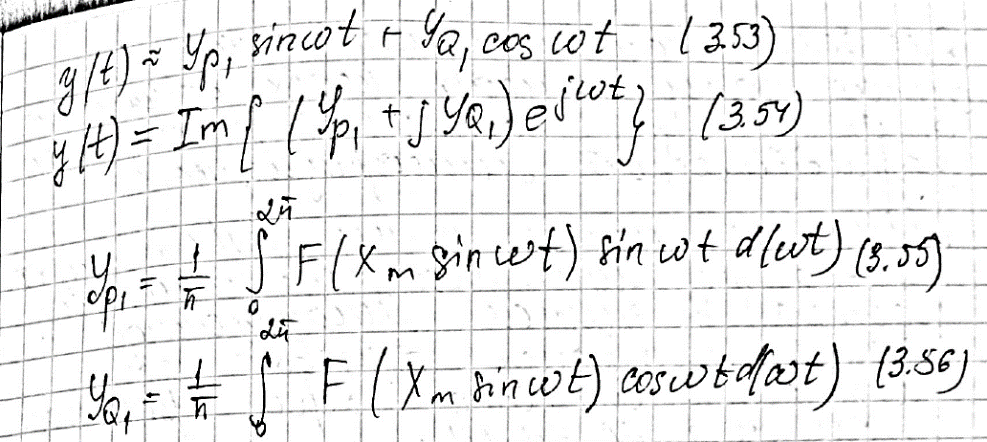 y(t) ≈ y_{p_1} sin ωt + y_{Q_1} cos ωt (3.53)
y(t) = Im{ (y_{p_1} + j y_{Q_1}) e^{jωt} } (3.54)
y_{p_1} = \frac{1}{π} \int_0^{2π} F(x_m sin ωt) sin ωt d(ωt) (3.55)
y_{Q_1} = \frac{1}{π} \int_0^{2π} F(x_m sin ωt) cos ωt d(ωt) (3.56)